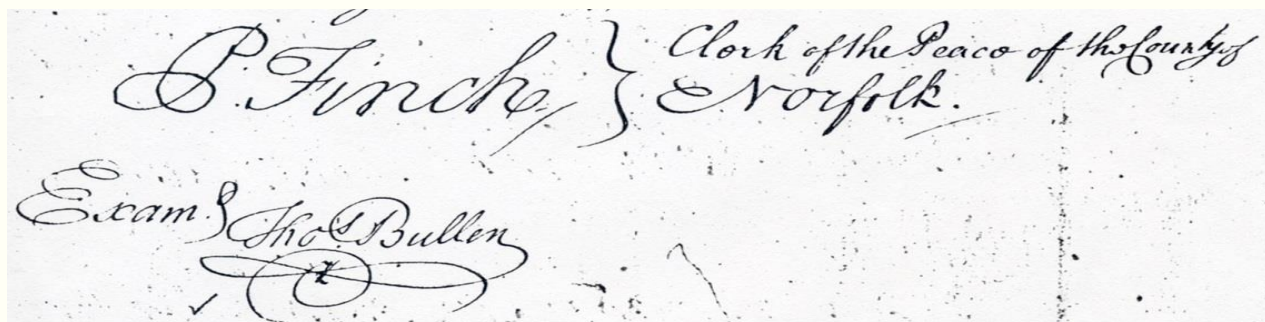 P. Finch } Clerk of the Peace of the County of
Norfolk.
Exam.d } Thos. Bullen